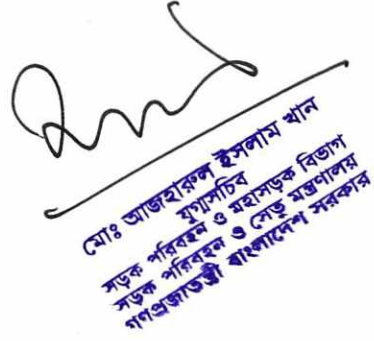 মোঃ আজহারুল ইসলাম খান
যুগ্মসচিব
সড়ক পরিবহন ও মহাসড়ক বিভাগ
সড়ক পরিবহন ও সেতু মন্ত্রণালয়
গণপ্রজাতন্ত্রী বাংলাদেশ সরকার